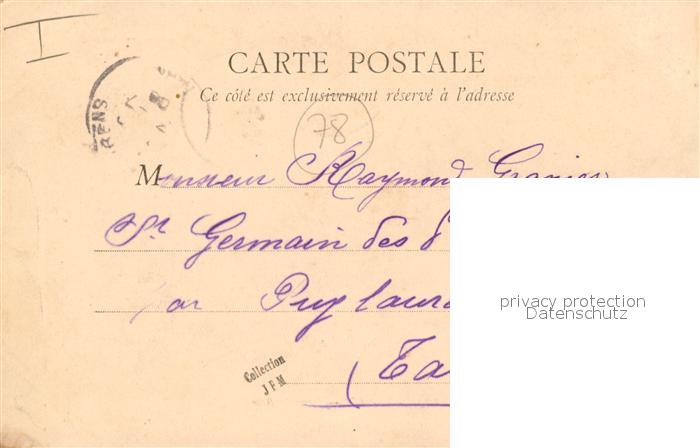 I
CARTE POSTALE
Ce côté est exclusivement réservé à l'adresse
78
Monsieur Raymond Granier
St Germain des
par Puylaur
(Ta
privacy protection
Datenschutz
Collection
JFM